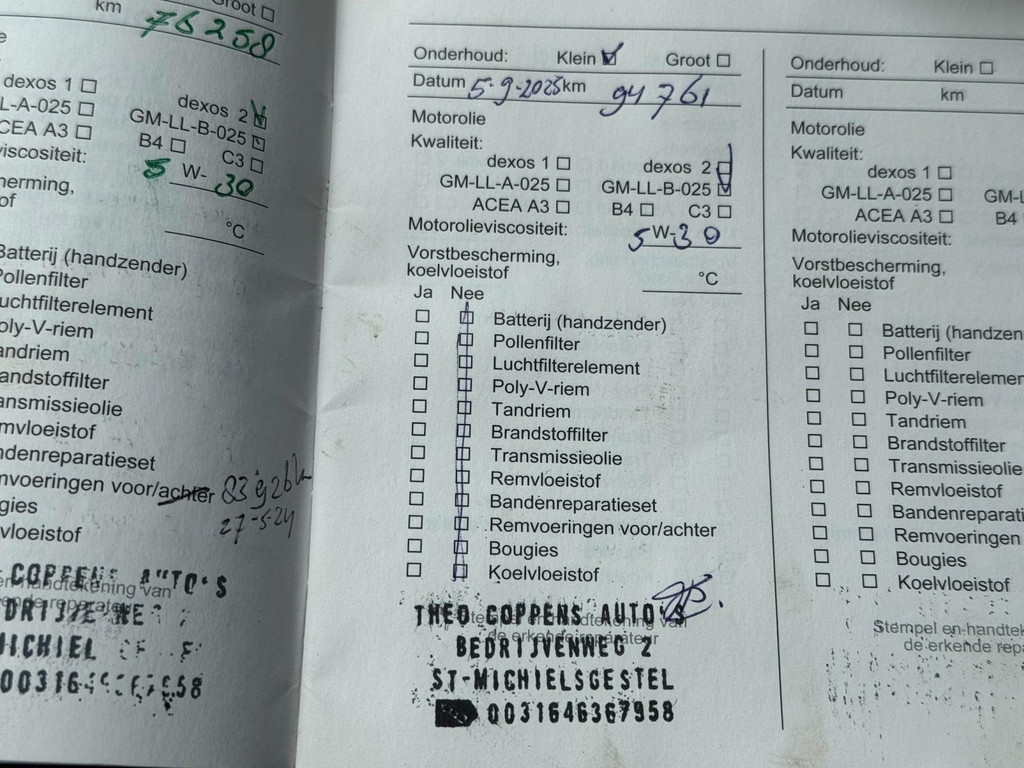 km 76258
Groot
dexos 1
dexos 2
L-A-025
GM-LL-B-025
CEA A3
B4
C3
viscositeit:
5 W- 30
herming,
of
°C
Batterij (handzender)
Pollenfilter
uchtfilterelement
oly-V-riem
andriem
andstoffilter
ansmissieolie
mvloeistof
ndenreparatieset
mvoeringen voor/achter
27-5-24
gies
vloeistof
COPPENS A"TO'S
0031646367958
Onderhoud: Klein Groot
Datum 5-9-2025 km 94761
Motorolie
Kwaliteit:
dexos 1 dexos 2
GM-LL-A-025 GM-LL-B-025
ACEA A3 B4 C3
Motorolieviscositeit: 5 W-30
Vorstbescherming,
koelvloeistof °C
Ja Nee
Batterij (handzender)
Pollenfilter
Luchtfilterelement
Poly-V-riem
Tandriem
Brandstoffilter
Transmissieolie
Remvloeistof
Bandenreparatieset
Remvoeringen voor/achter
Bougies
Koelvloeistof
THEO COPPENS AUTO'S
de erkende reparateur
BEDRIJVENWEG 2
ST-MICHIELSGESTEL
0031646367958
Onderhoud: Klein
Datum km
Motorolie
Kwaliteit:
dexos 1
GM-LL-A-025 GM-L
ACEA A3 B4
Motorolieviscositeit:
Vorstbescherming,
koelvloeistof
Ja Nee
Batterij (handzen
Pollenfilter
Luchtfilterelemen
Poly-V-riem
Tandriem
Brandstoffilter
Transmissieolie
Remvloeistof
Bandenreparati
Remvoeringen
Bougies
Koelvloeistof
Stempel en handtek
de erkende repa